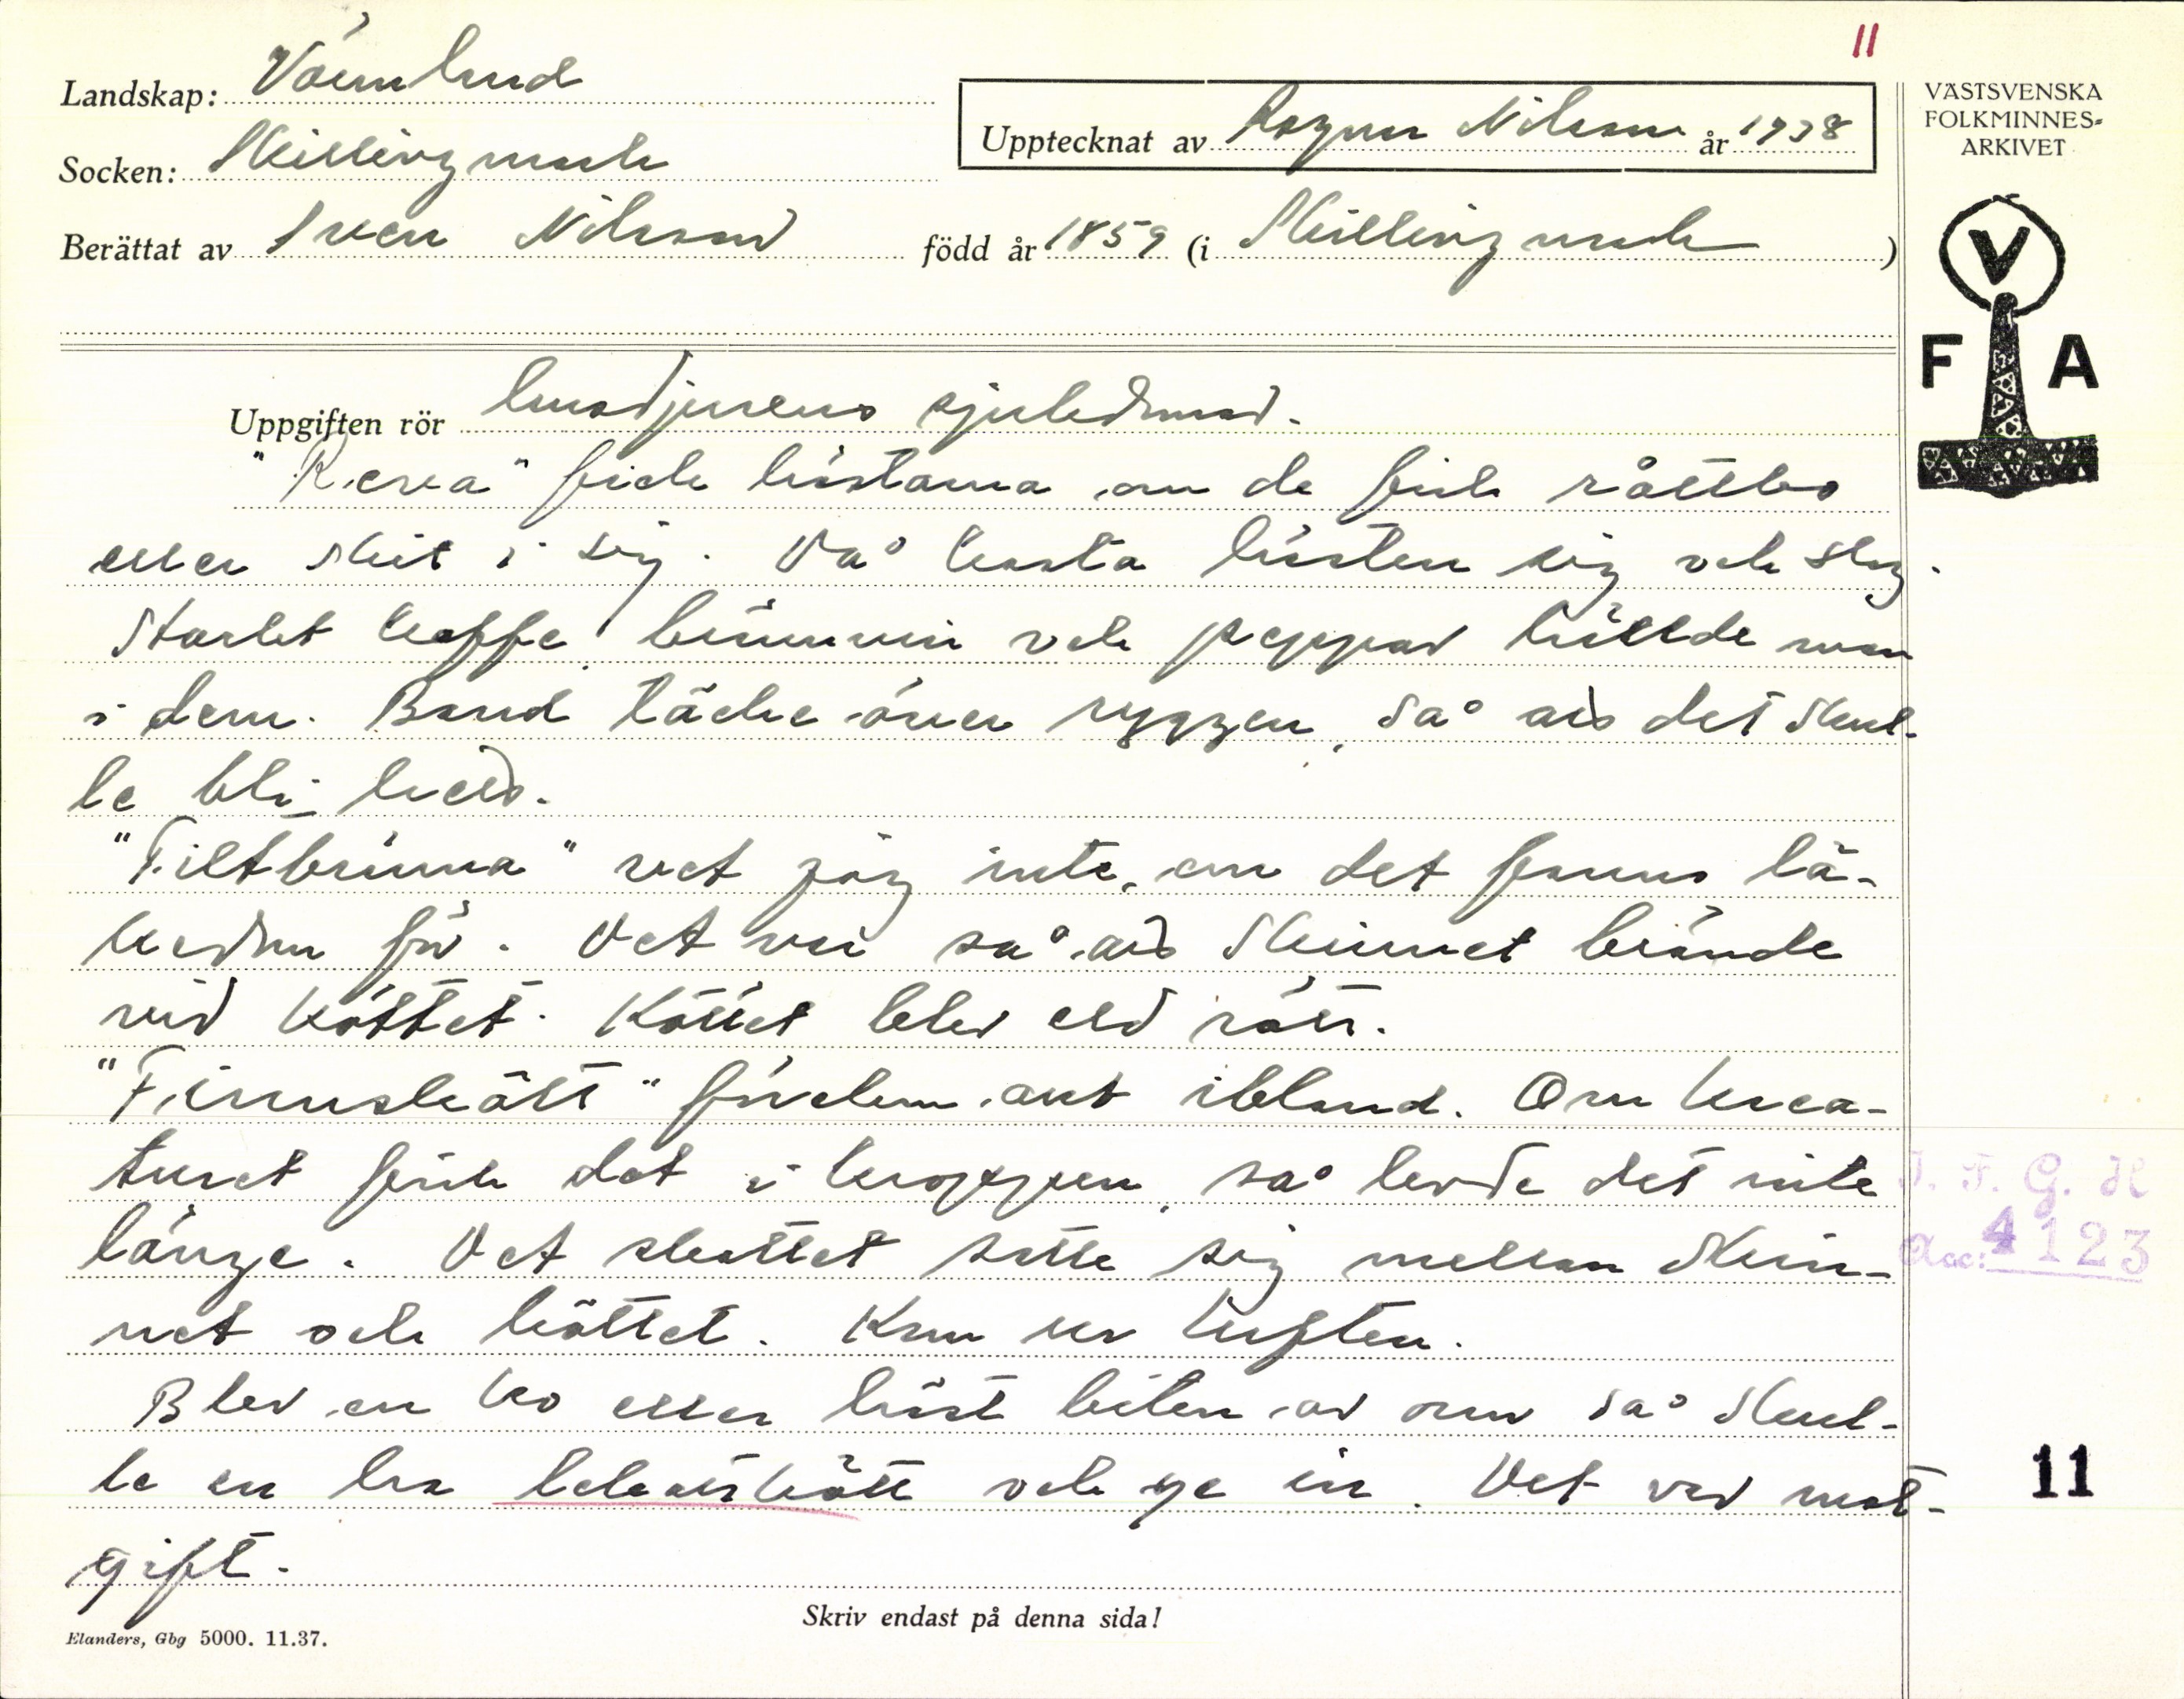 11
Landskap: Värmland
Upptecknat av Ragnar Nilsson år 1938
Socken: Skillingmark
Berättat av Sven Nilsson född år 1859 (i Skillingmark)
VÄSTSVENSKA
FOLKMINNES-
ARKIVET
V
F A
Uppgiften rör husdjurens sjukdomar.
"Reva" fick hästarna om de fick råttbo
eller skit i sig. Då kasta hästen sig och slog.
Starkt kaffe, brännvin och peppar hällde man
i dem. Band täcke över ryggen, så att det skul-
le bli hett.
"Filtbrinna" vet jag inte, om det fanns lä-
kedom för. Det var så att skinnet brände
vid köttet. Köttet blev eld rött.
"Finnskott" förekom ant ibland. Om krea-
turet fick det i kroppen, så levde det inte
länge. Det skottet satte sig mellan skin-
net och köttet. Kom ur luften.
Blev en ko eller häst biten av orm så skul-
le en ha lekattskött och ge in. Det var mot-
gift.
I. F. G. H
Acc: 4123
11
Skriv endast på denna sida!
Elanders, Gbg 5000. 11.37.